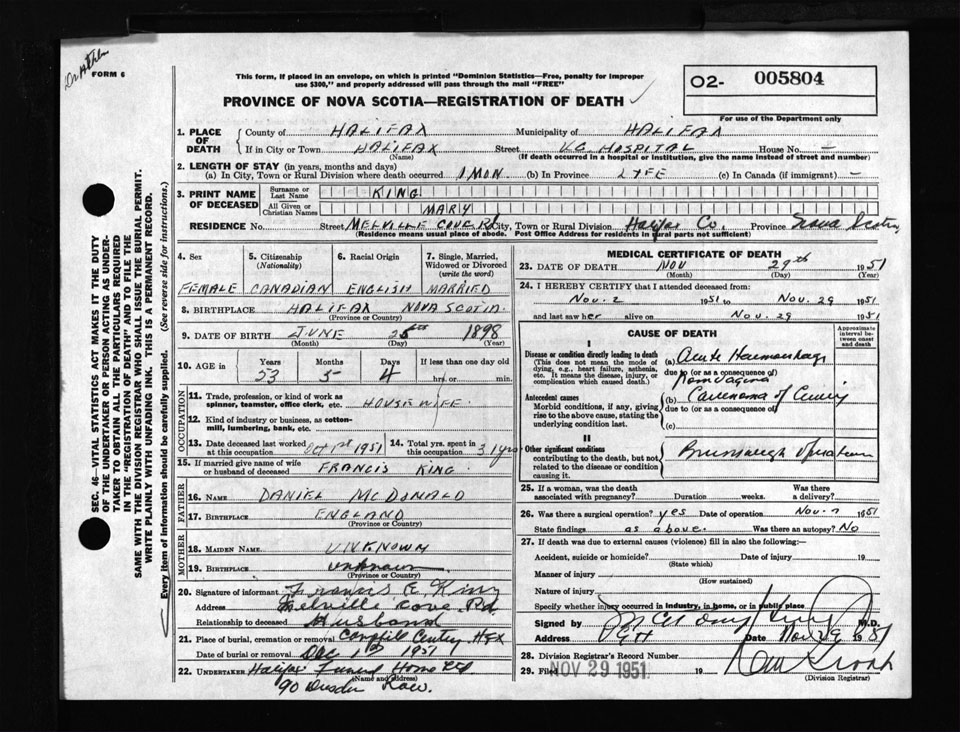 Dr
FORM 6
This form, if placed in an envelope, on which is printed "Dominion Statistics—Free, penalty for improper
use $300," and properly addressed will pass through the mail "FREE"
PROVINCE OF NOVA SCOTIA—REGISTRATION OF DEATH
O2- 005804
For use of the Department only
1. PLACE OF DEATH
County of HALIFAX Municipality of HALIFAX
If in City or Town HALIFAX Street V.G. HOSPITAL House No. —
(Name) (If death occurred in a hospital or institution, give the name instead of street and number)
2. LENGTH OF STAY (in years, months and days)
(a) In City, Town or Rural Division where death occurred 1 MON. (b) In Province LIFE (c) In Canada (if immigrant) —
3. PRINT NAME OF DECEASED
Surname or Last Name KING
All Given or Christian Names MARY
RESIDENCE No. Street MELVILLE COVE Rd City, Town or Rural Division Halifax Co. Province Nova Scotia
(Residence means usual place of abode. Post Office Address for residents in rural parts not sufficient)
4. Sex
5. Citizenship (Nationality)
6. Racial Origin
7. Single, Married, Widowed or Divorced (write the word)
FEMALE CANADIAN ENGLISH MARRIED
8. BIRTHPLACE HALIFAX NOVA SCOTIA.
(Province or Country)
9. DATE OF BIRTH JUNE 25th 1898
(Month) (Day) (Year)
10. AGE Years Months Days If less than one day old
53 5 4 hrs. or min.
OCCUPATION
11. Trade, profession, or kind of work as
spinner, teamster, office clerk, etc. HOUSEWIFE.
12. Kind of industry or business, as cotton-
mill, lumbering, bank, etc.
13. Date deceased last worked at this occupation Oct 1st 1951 14. Total yrs. spent in this occupation 31 yrs
15. If married give name of wife
or husband of deceased FRANCIS KING.
FATHER
16. NAME DANIEL MCDONALD
17. BIRTHPLACE ENGLAND
(Province or Country)
MOTHER
18. MAIDEN NAME UNKNOWN
19. BIRTHPLACE unknown
(Province or Country)
20. Signature of informant Francis E. King
Address Melville Cove Rd.
Relationship to deceased Husband
21. Place of burial, cremation or removal Hfx
Date of burial or removal Dec 1st 1951
22. UNDERTAKER Halifax Funeral Home Ltd
(Name and address)
90 Row.
MEDICAL CERTIFICATE OF DEATH
23. DATE OF DEATH NOV 29th 1951
(Month) (Day) (Year)
24. I HEREBY CERTIFY that I attended deceased from:
Nov. 2 1951 to Nov. 29 1951
and last saw her alive on Nov. 29 1951
CAUSE OF DEATH
Approximate interval between onset and death
I
Disease or condition directly leading to death
(This does not mean the mode of
dying, e.g., heart failure, asthenia,
etc. It means the disease, injury, or
complication which caused death.)
(a) Acute Haemorrhage
due to (or as a consequence of)
from vagina
Antecedent causes
Morbid conditions, if any, giving
rise to the above cause, stating the
underlying condition last.
(b) Carcinoma of Cervix
due to (or as a consequence of)
(c)
II
Other significant conditions
contributing to the death, but not
related to the disease or condition
causing it.
25. If a woman, was the death
associated with pregnancy? Duration weeks. Was there a delivery?
26. Was there a surgical operation? yes Date of operation Nov. 1951
State findings as above. Was there an autopsy? No
27. If death was due to external causes (violence) fill in also the following:—
Accident, suicide or homicide? Date of injury 19
(State which)
Manner of injury
(How sustained)
Nature of injury
Specify whether injury occurred in industry, in home, or in public place
Signed by M.D.
Address VGH Date Nov 29 1951
28. Division Registrar's Record Number
29. Filed NOV 29 1951. 19
(Division Registrar)
SEC. 46—VITAL STATISTICS ACT MAKES IT THE DUTY
OF THE UNDERTAKER OR PERSON ACTING AS UNDER-
TAKER TO OBTAIN ALL THE PARTICULARS REQUIRED
IN THE "REGISTRATION OF DEATH" AND TO FILE THE
SAME WITH THE DIVISION REGISTRAR WHO SHALL ISSUE THE BURIAL PERMIT.
WRITE PLAINLY WITH UNFADING INK. THIS IS A PERMANENT RECORD.
Every item of information should be carefully supplied. (See reverse side for instructions.)